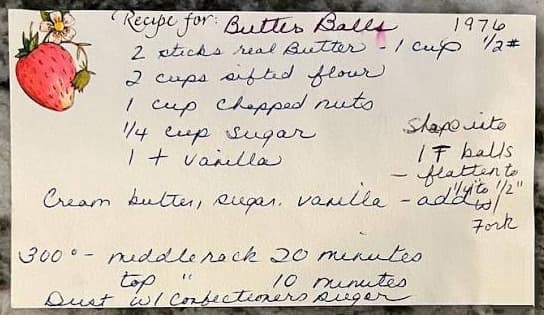 Recipe for: Butter Balls 1976
2 sticks real Butter - 1 cup 1/2#
2 cups sifted flour
1 cup chopped nuts
1/4 cup sugar
1 t vanilla
Shape into
1 T balls
- flatten to
1/4" to 1/2"
w/
Fork
Cream butter, sugar, vanilla - add
300° - middle rack 20 minutes
top " 10 minutes
Dust w/ Confectioners sugar